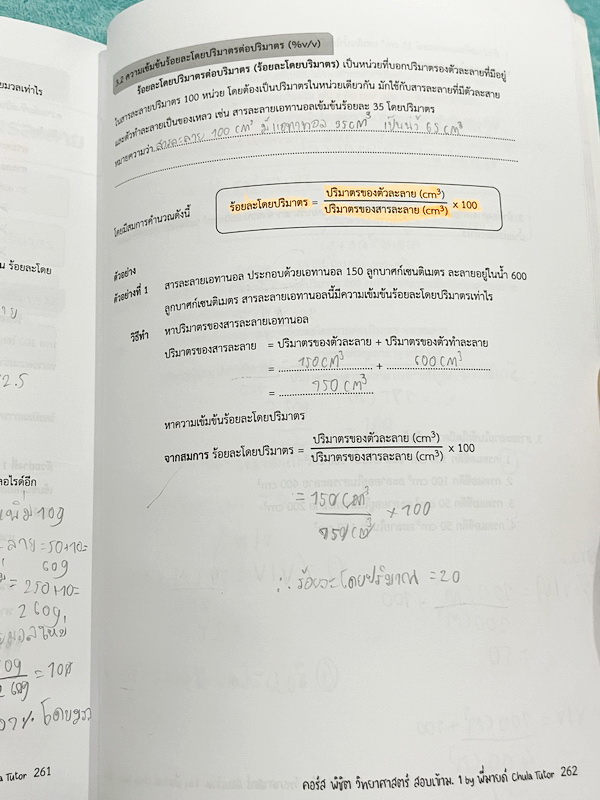 3.2 ความเข้มข้นร้อยละโดยปริมาตรต่อปริมาตร (%v/v)
ร้อยละโดยปริมาตรต่อปริมาตร (ร้อยละโดยปริมาตร) เป็นหน่วยที่บอกปริมาตรของตัวละลายที่มีอยู่
ในสารละลายปริมาตร 100 หน่วย โดยต้องเป็นปริมาตรในหน่วยเดียวกัน มักใช้กับสารละลายที่มีตัวละลาย
และตัวทำละลายเป็นของเหลว เช่น สารละลายเอทานอลเข้มข้นร้อยละ 35 โดยปริมาตร
หมายความว่า สารละลาย 100 cm³ มีเอทานอล 35 cm³ เป็นน้ำ 65 cm³
โดยมีสมการคำนวณดังนี้
ร้อยละโดยปริมาตร = ปริมาตรของตัวละลาย (cm³) / ปริมาตรของสารละลาย (cm³) x 100
ตัวอย่าง
ตัวอย่างที่ 1 สารละลายเอทานอล ประกอบด้วยเอทานอล 150 ลูกบาศก์เซนติเมตร ละลายอยู่ในน้ำ 600
ลูกบาศก์เซนติเมตร สารละลายเอทานอลนี้มีความเข้มข้นร้อยละโดยปริมาตรเท่าไร
วิธีทำ หาปริมาตรของสารละลายเอทานอล
ปริมาตรของสารละลาย = ปริมาตรของตัวละลาย + ปริมาตรของตัวทำละลาย
= 150 cm³ + 600 cm³
= 750 cm³
หาความเข้มข้นร้อยละโดยปริมาตร
จากสมการ ร้อยละโดยปริมาตร = ปริมาตรของตัวละลาย (cm³) / ปริมาตรของสารละลาย (cm³) x 100
= 150 cm³ / 750 cm³ x 100
∴ ร้อยละโดยปริมาณ = 20
คอร์ส พิชิต วิทยาศาสตร์ สอบเข้าม. 1 by พี่มายด์ Chula Tutor 262
ยมวลเท่าไร
ร้อยละโดย
2.5
ลอไรด์อีก
เพิ่ม 10g
ลาย = 50+10 =
60g
= 250+10 =
260g
Tutor 261